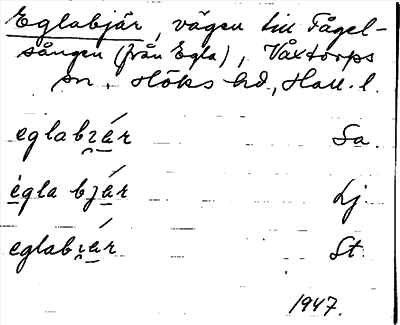 Eglabjär, vägen till Fågel-
sången (från Egla), Våxtorps
sn, Höks hd, Hall. l.
eglabɪ̯ár Sa.
égla bjár Lj.
eglabɪ̯ár St.
1947.